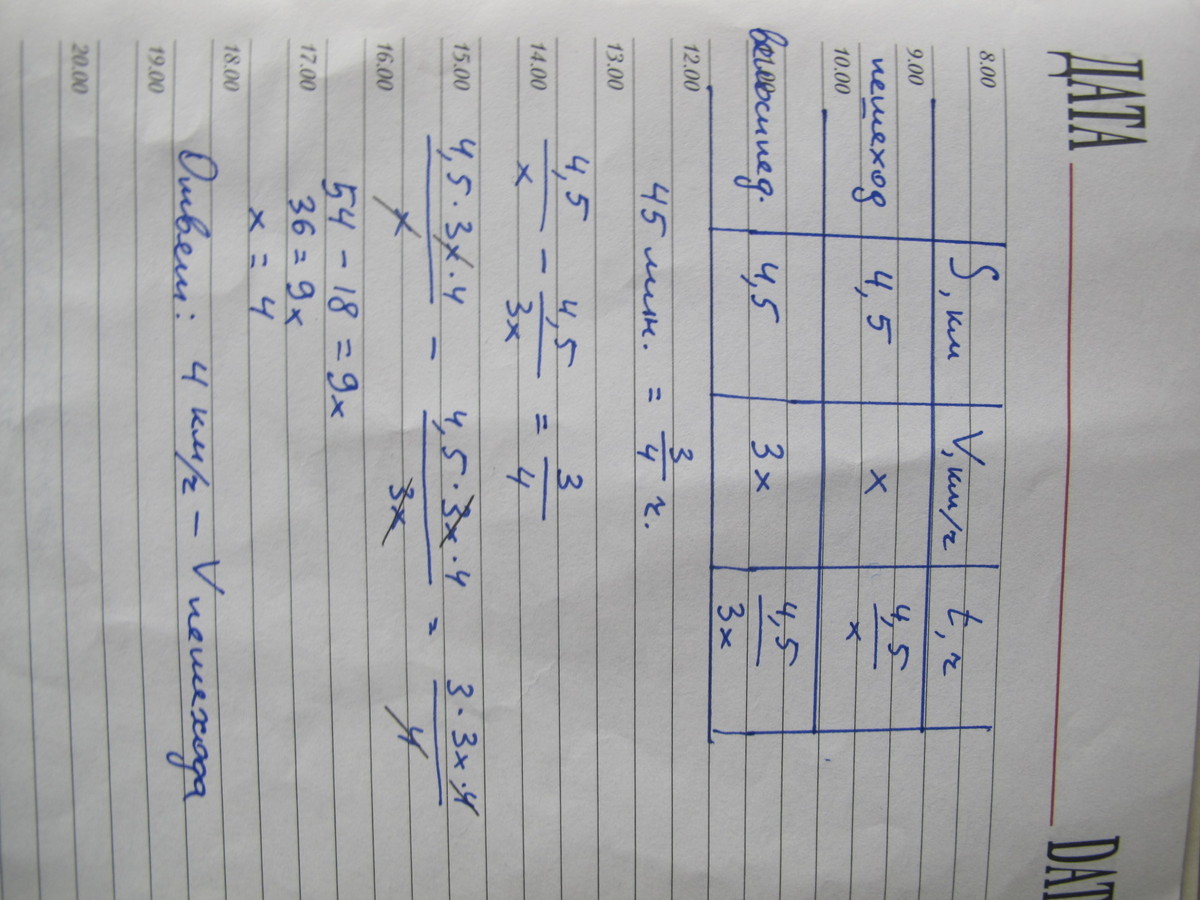 ДАТА DAT
8.00
S, км V, км/ч t, ч
9.00
пешеход 4,5 x 4,5/x
10.00
велосипед. 4,5 3x 4,5/3x
12.00
45 мин. = 3/4 ч.
13.00
14.00
4,5/x - 4,5/3x = 3/4
15.00
4,5·3x·4/x - 4,5·3x·4/3x = 3·3x·4/4
16.00
54 - 18 = 9x
17.00
36 = 9x
18.00
x = 4
19.00
Ответ: 4 км/ч - V пешехода
20.00